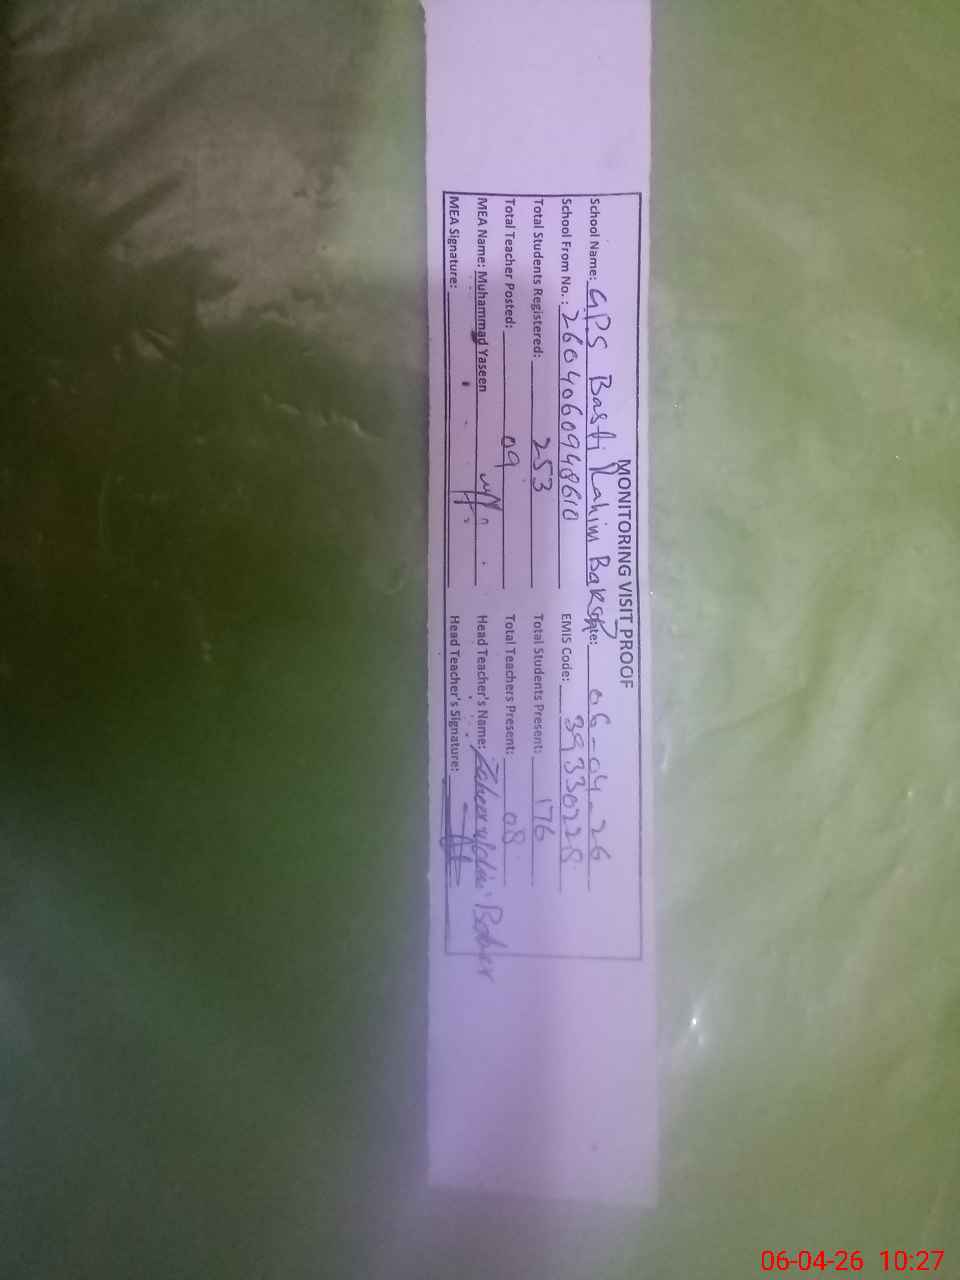 MONITORING VISIT PROOF
School Name: GPS Basti Rahim Baksh Date: 06-04-26
School From No.: 2604060948610 EMIS Code: 39330228
Total Students Registered: 253 Total Students Present: 176
Total Teacher Posted: 09 Total Teachers Present: 08
MEA Name: Muhammad Yaseen Head Teacher's Name: Zaheer uldin Baber
MEA Signature: Head Teacher's Signature:
06-04-26 10:27